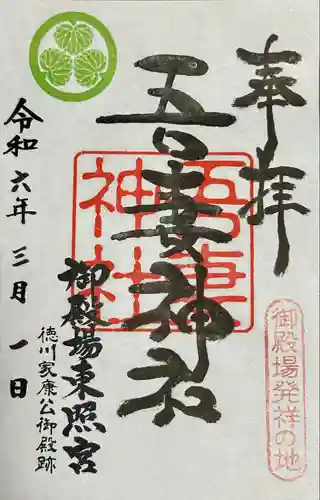 奉拝
御殿場発祥の地
吾妻神社
吾妻神社
御殿場東照宮
徳川家康公御殿跡
令和六年三月一日